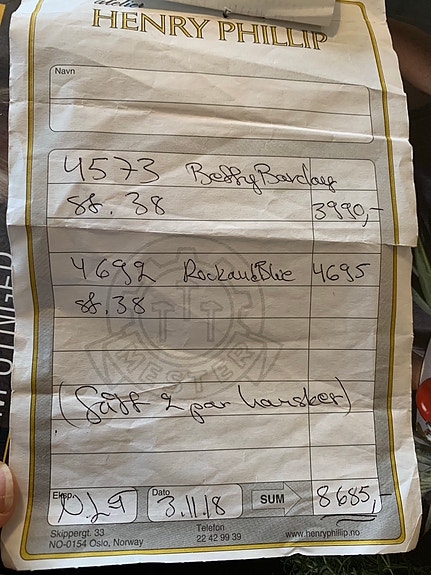 atelier
HENRY PHILLIP
Navn
4573 Betty Barclay
str. 38 3990,-
4692 Rock and Blue 4695
str. 38
MESTER
(gått 2 par hansker)
Eksp. Dato 3.11.18 SUM 8685,-
Skippergt. 33 Telefon
NO-0154 Oslo, Norway 22 42 99 39 www.henryphillip.no